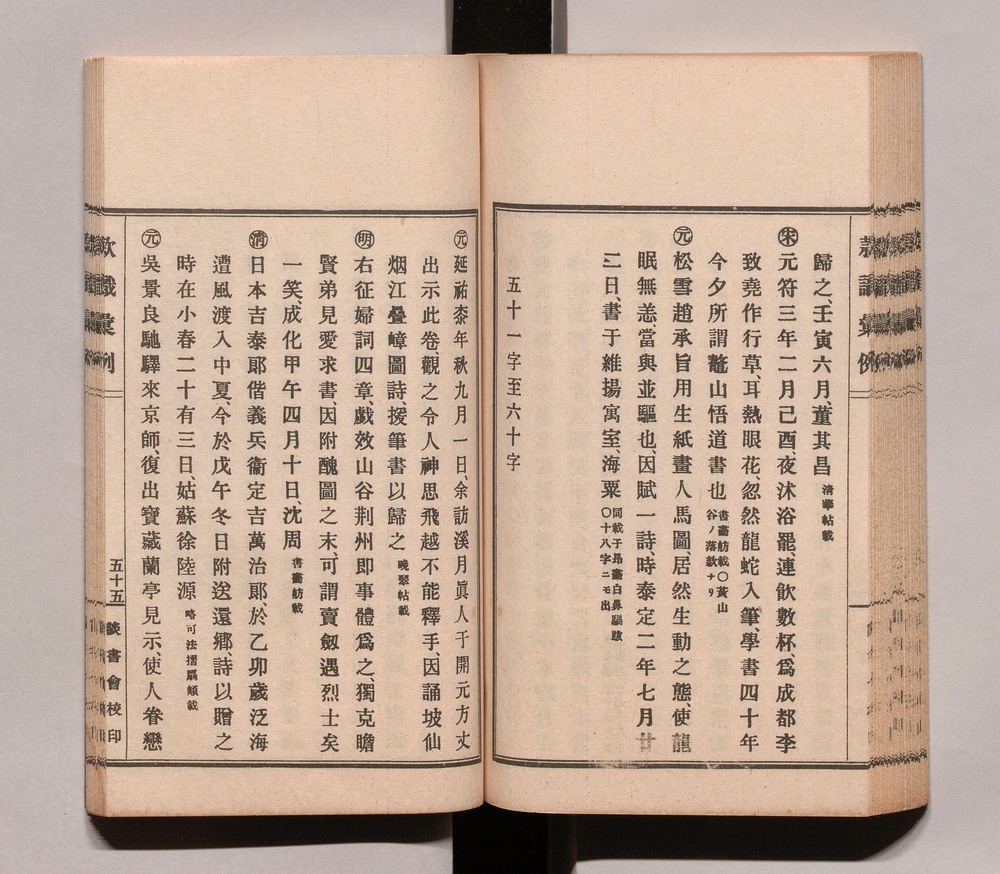 款識彙例
歸之、壬寅六月、董其昌 清華帖載
宋 元符三年二月己酉、夜沐浴罷、連飮數杯、爲成都李
致堯作行草、耳熱眼花、忽然龍蛇入筆、學書四十年
今夕所謂鼇山悟道書也 書畵舫載〇黃山谷ノ落款ナリ
元 松雪趙承旨用生紙畫人馬圖、居然生動之態、使龍
眠無恙當與並驅也、因賦一詩、時泰定二年七月廿
二日、書于維揚寓室、海粟 同載于昂畵白鼻騧跋〇十八字ニモ出
五十一字至六十字
元 延祐柒年秋九月一日、余訪溪月眞人于開元方丈
出示此卷、觀之令人神思飛越不能釋手、因誦坡仙
烟江疊嶂圖詩、援筆書以歸之 晚翠帖載
明 右征婦詞四章、戲效山谷荆州卽事體爲之、獨克瞻
賢弟見愛求書、因附醜圖之末、可謂賣劔遇烈士矣
一笑、成化甲午四月十日、沈周 書畵舫載
淸 日本吉泰郞偕義兵衞定吉萬治郞、於乙卯歲泛海
遭風渡入中夏、今於戊午冬日附送還鄕、詩以贈之
時在小春二十有三日、姑蘇徐陸源 略可法摺扇頰載
元 吳景良馳驛來京師、復出寶藏蘭亭見示、使人眷戀
款識彙例
五十五
談書會校印